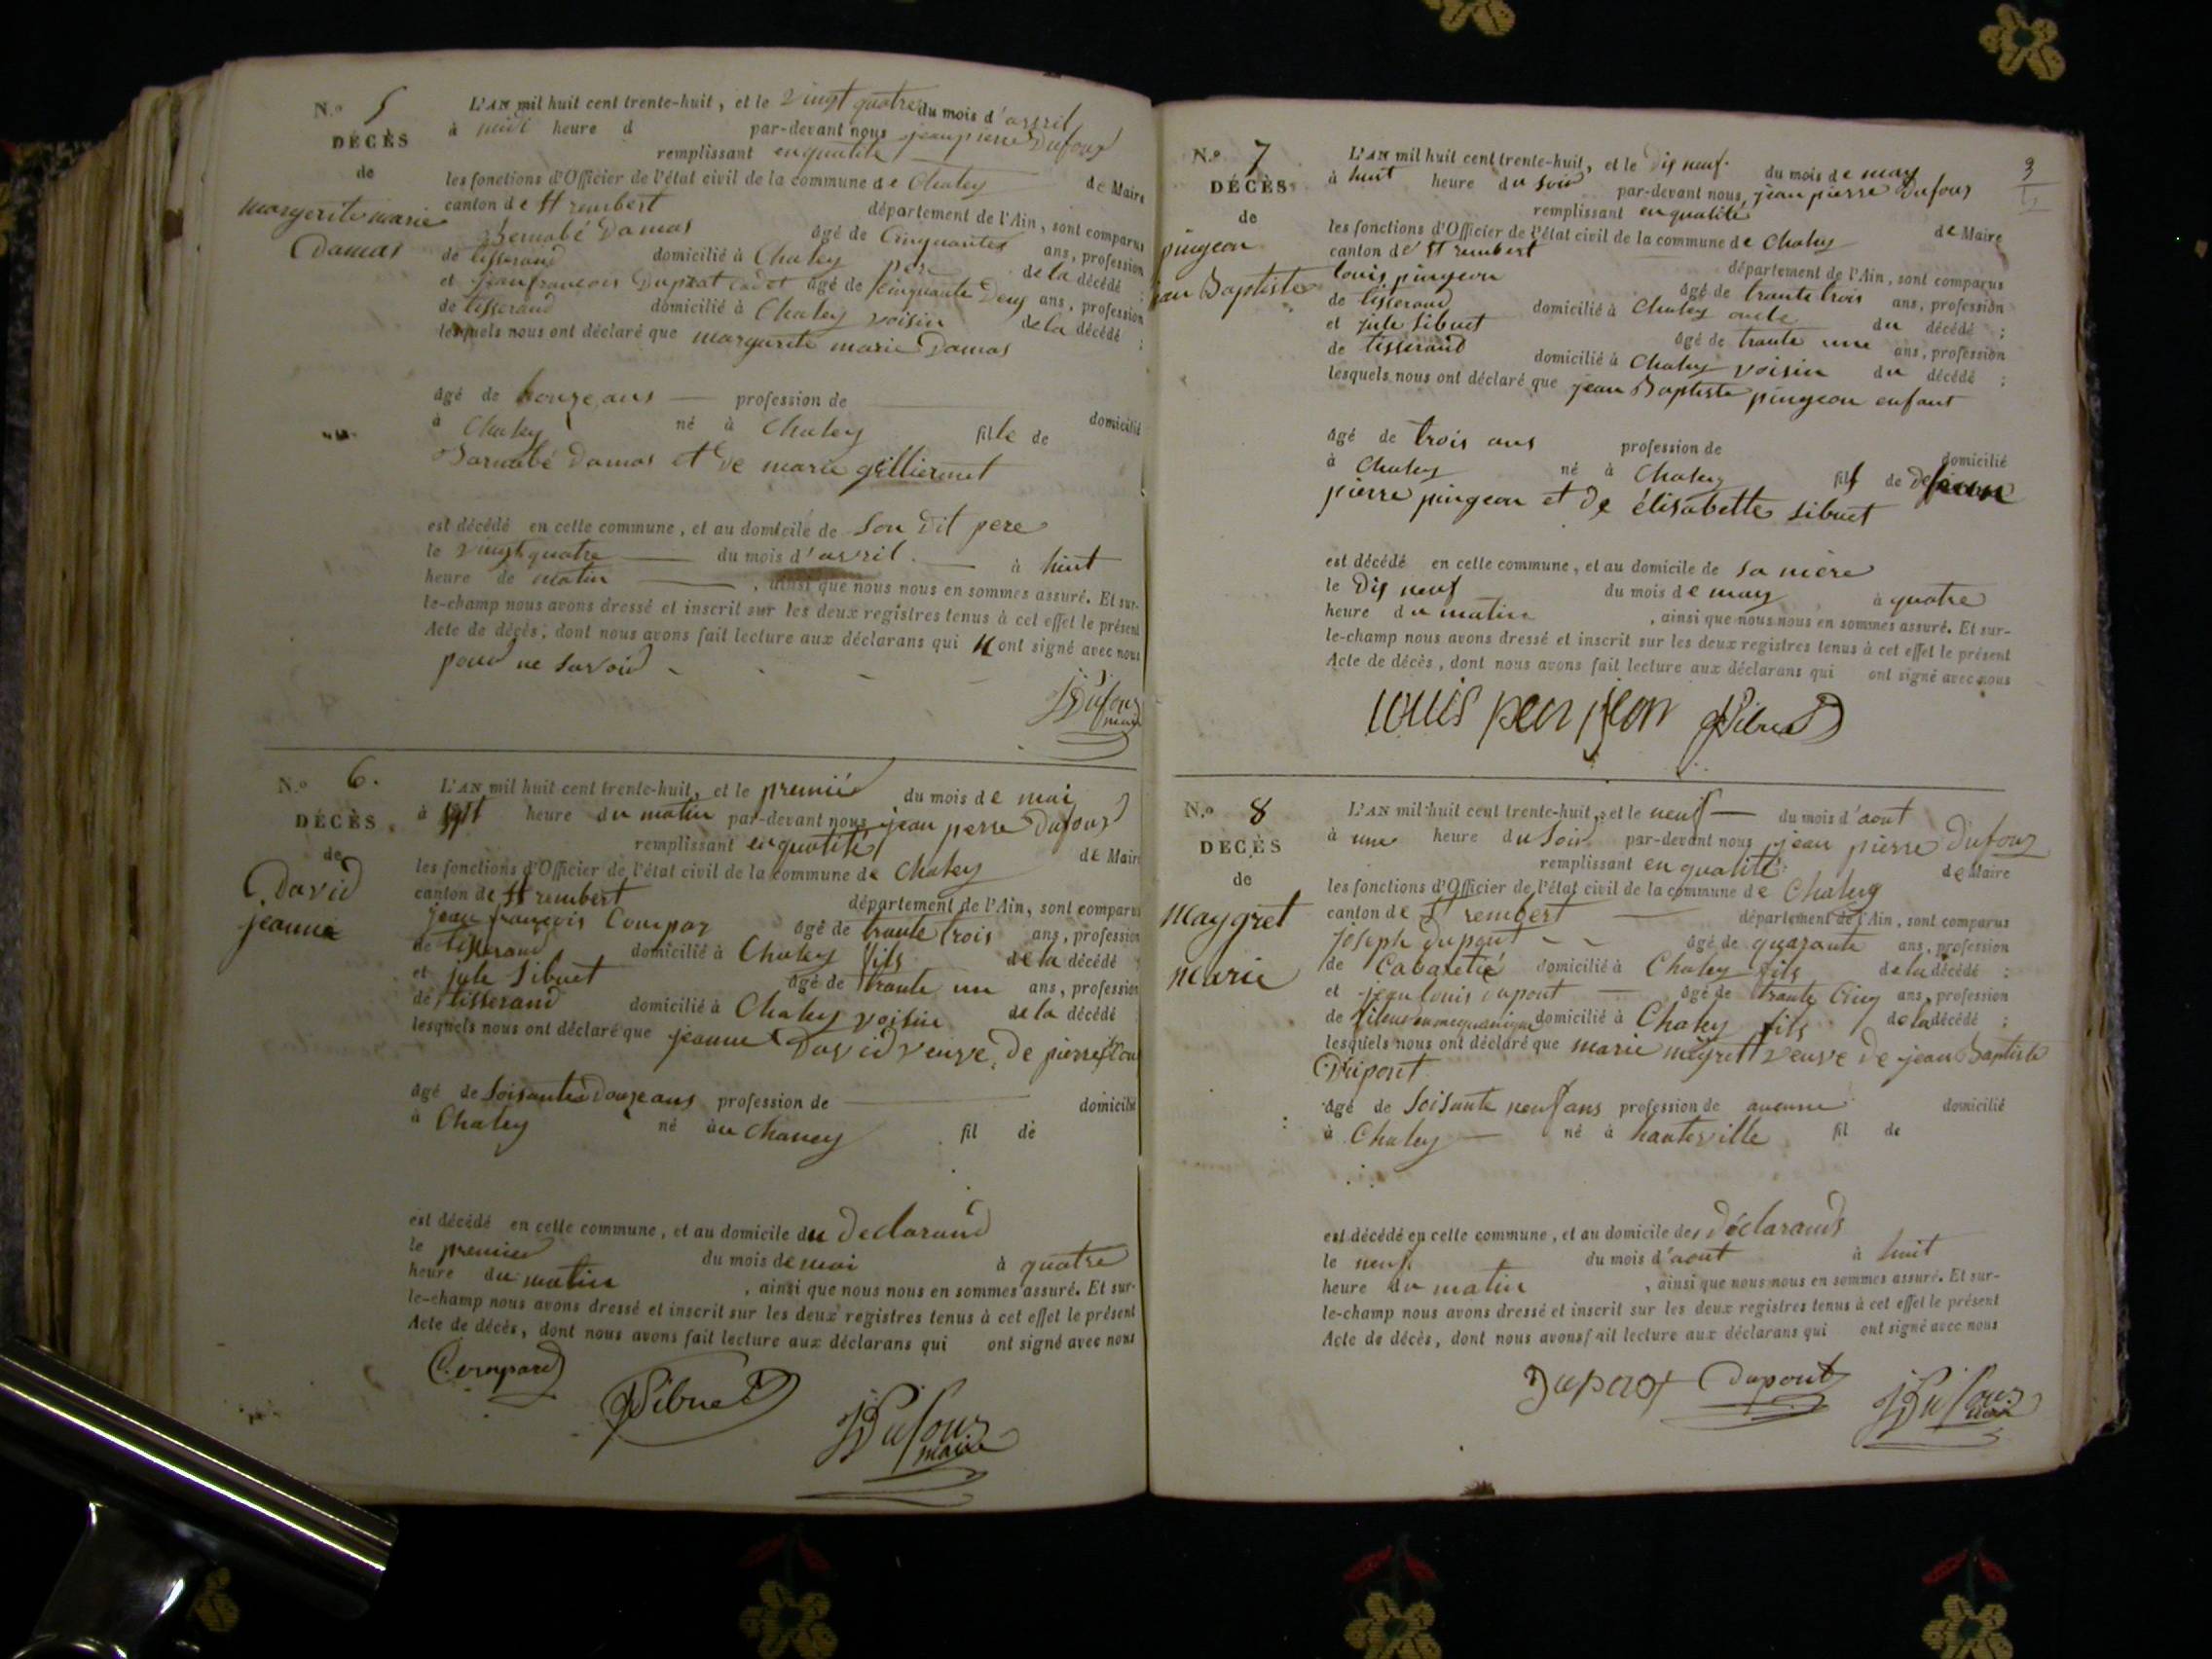 N.° 5
DÉCÈS
de
margerite marie
Damas
L'AN mil huit cent trente-huit, et le vingt quatre du mois d'avril
à midi heure d par-devant nous jean pierre Dufour
remplissant en qualité de Maire
les fonctions d'Officier de l'état civil de la commune de Chaley
canton de St rembert département de l'Ain, sont comparus
Bernabé Damas âgé de Cinquante ans, profession
de tisserand domicilié à Chaley père de la décédé ;
et jean francois Duprat cadet âgé de cinquante Deux ans, profession
de tisserand domicilié à Chaley voisin de la décédé ;
lesquels nous ont déclaré que margerite marie Damas
âgé de onze ans profession de domicilié
à Chaley né à Chaley fille de
Barnabé Damas et de marie gilliermet
est décédé en cette commune, et au domicile de Son Dit pere
le vingt quatre du mois d'avril à huit
heure de matin , ainsi que nous nous en sommes assuré. Et sur-
le-champ nous avons dressé et inscrit sur les deux registres tenus à cet effet le présent
Acte de décès, dont nous avons fait lecture aux déclarans qui n'ont signé avec nous
pour ne savoir
JDufour
maire
N.° 6.
DÉCÈS
de
David
jeanne
L'AN mil huit cent trente-huit, et le premié du mois de mai
à sept heure du matin par-devant nous jean perre Dufour
remplissant en qualité de Maire
les fonctions d'Officier de l'état civil de la commune de Chaley
canton de St rembert département de l'Ain, sont comparus
jean françois Compar âgé de trante trois ans, profession
de tisserand domicilié à Chaley fils de la décédé
et jule Sibuet âgé de trante un ans, profession
de tisserand domicilié à Chaley voisin de la décédé
lesquels nous ont déclaré que jeanne David veuve De pierre
âgé de Soisante Douze ans profession de domicilié
à Chaley né au Chaney fil de
est décédé en cette commune, et au domicile du Declarand
le premier du mois de mai à quatre
heure du matin , ainsi que nous nous en sommes assuré. Et sur-
le-champ nous avons dressé et inscrit sur les deux registres tenus à cet effet le présent
Acte de décès, dont nous avons fait lecture aux déclarans qui ont signé avec nous
Compard
JSibuet
JDufour
maire
3
N.° 7
DÉCÈS
de
pingeon
jean Baptiste
L'AN mil huit cent trente-huit, et le Dis neuf du mois de may
à huit heure du soir par-devant nous, jean pierre Dufour
remplissant en qualité de Maire
les fonctions d'Officier de l'état civil de la commune de Chaley
canton de St rembert département de l'Ain, sont comparus
louis pingeon âgé de trante trois ans, profession
de tisserand domicilié à Chaley oncle du décédé ;
et jule Sibuet âgé de trante une ans, profession
de tisserand domicilié à Chaley voisin du décédé ;
lesquels nous ont déclaré que jean Baptiste pingeon enfant
âgé de trois ans profession de domicilié
à Chaley né à Chaley fils de
pierre pingeon et de élisabette Sibuet
est décédé en cette commune, et au domicile de sa mère
le Dis neuf du mois de may à quatre
heure du matin , ainsi que nous nous en sommes assuré. Et sur-
le-champ nous avons dressé et inscrit sur les deux registres tenus à cet effet le présent
Acte de décès, dont nous avons fait lecture aux déclarans qui ont signé avec nous
louis penjeon JSibuet
N.° 8
DÉCÈS
de
maygret
marie
L'AN mil huit cent trente-huit, et le neuf du mois d'aout
à une heure du Soir par-devant nous jean pierre Dufour
remplissant en qualité de Maire
les fonctions d'Officier de l'état civil de la commune de Chaley
canton de St rembert département de l'Ain, sont comparus
joseph dupont âgé de quarante ans, profession
de Cabaretié domicilié à Chaley fils de la décédé ;
et jean louis dupont âgé de trante Cinq ans, profession
de fileur en mequanique domicilié à Chaley fils de la décédé ;
lesquels nous ont déclaré que marie meyret veuve de jean Baptiste
Dupont
âgé de Soisante neuf ans profession de aucune domicilié
à Chaley né à hauteville fil de
est décédé en cette commune, et au domicile des Déclarands
le neuf du mois d'aout à huit
heure du matin , ainsi que nous nous en sommes assuré. Et sur-
le-champ nous avons dressé et inscrit sur les deux registres tenus à cet effet le présent
Acte de décès, dont nous avons fait lecture aux déclarans qui ont signé avec nous
Dupont Dupont JDufour
maire